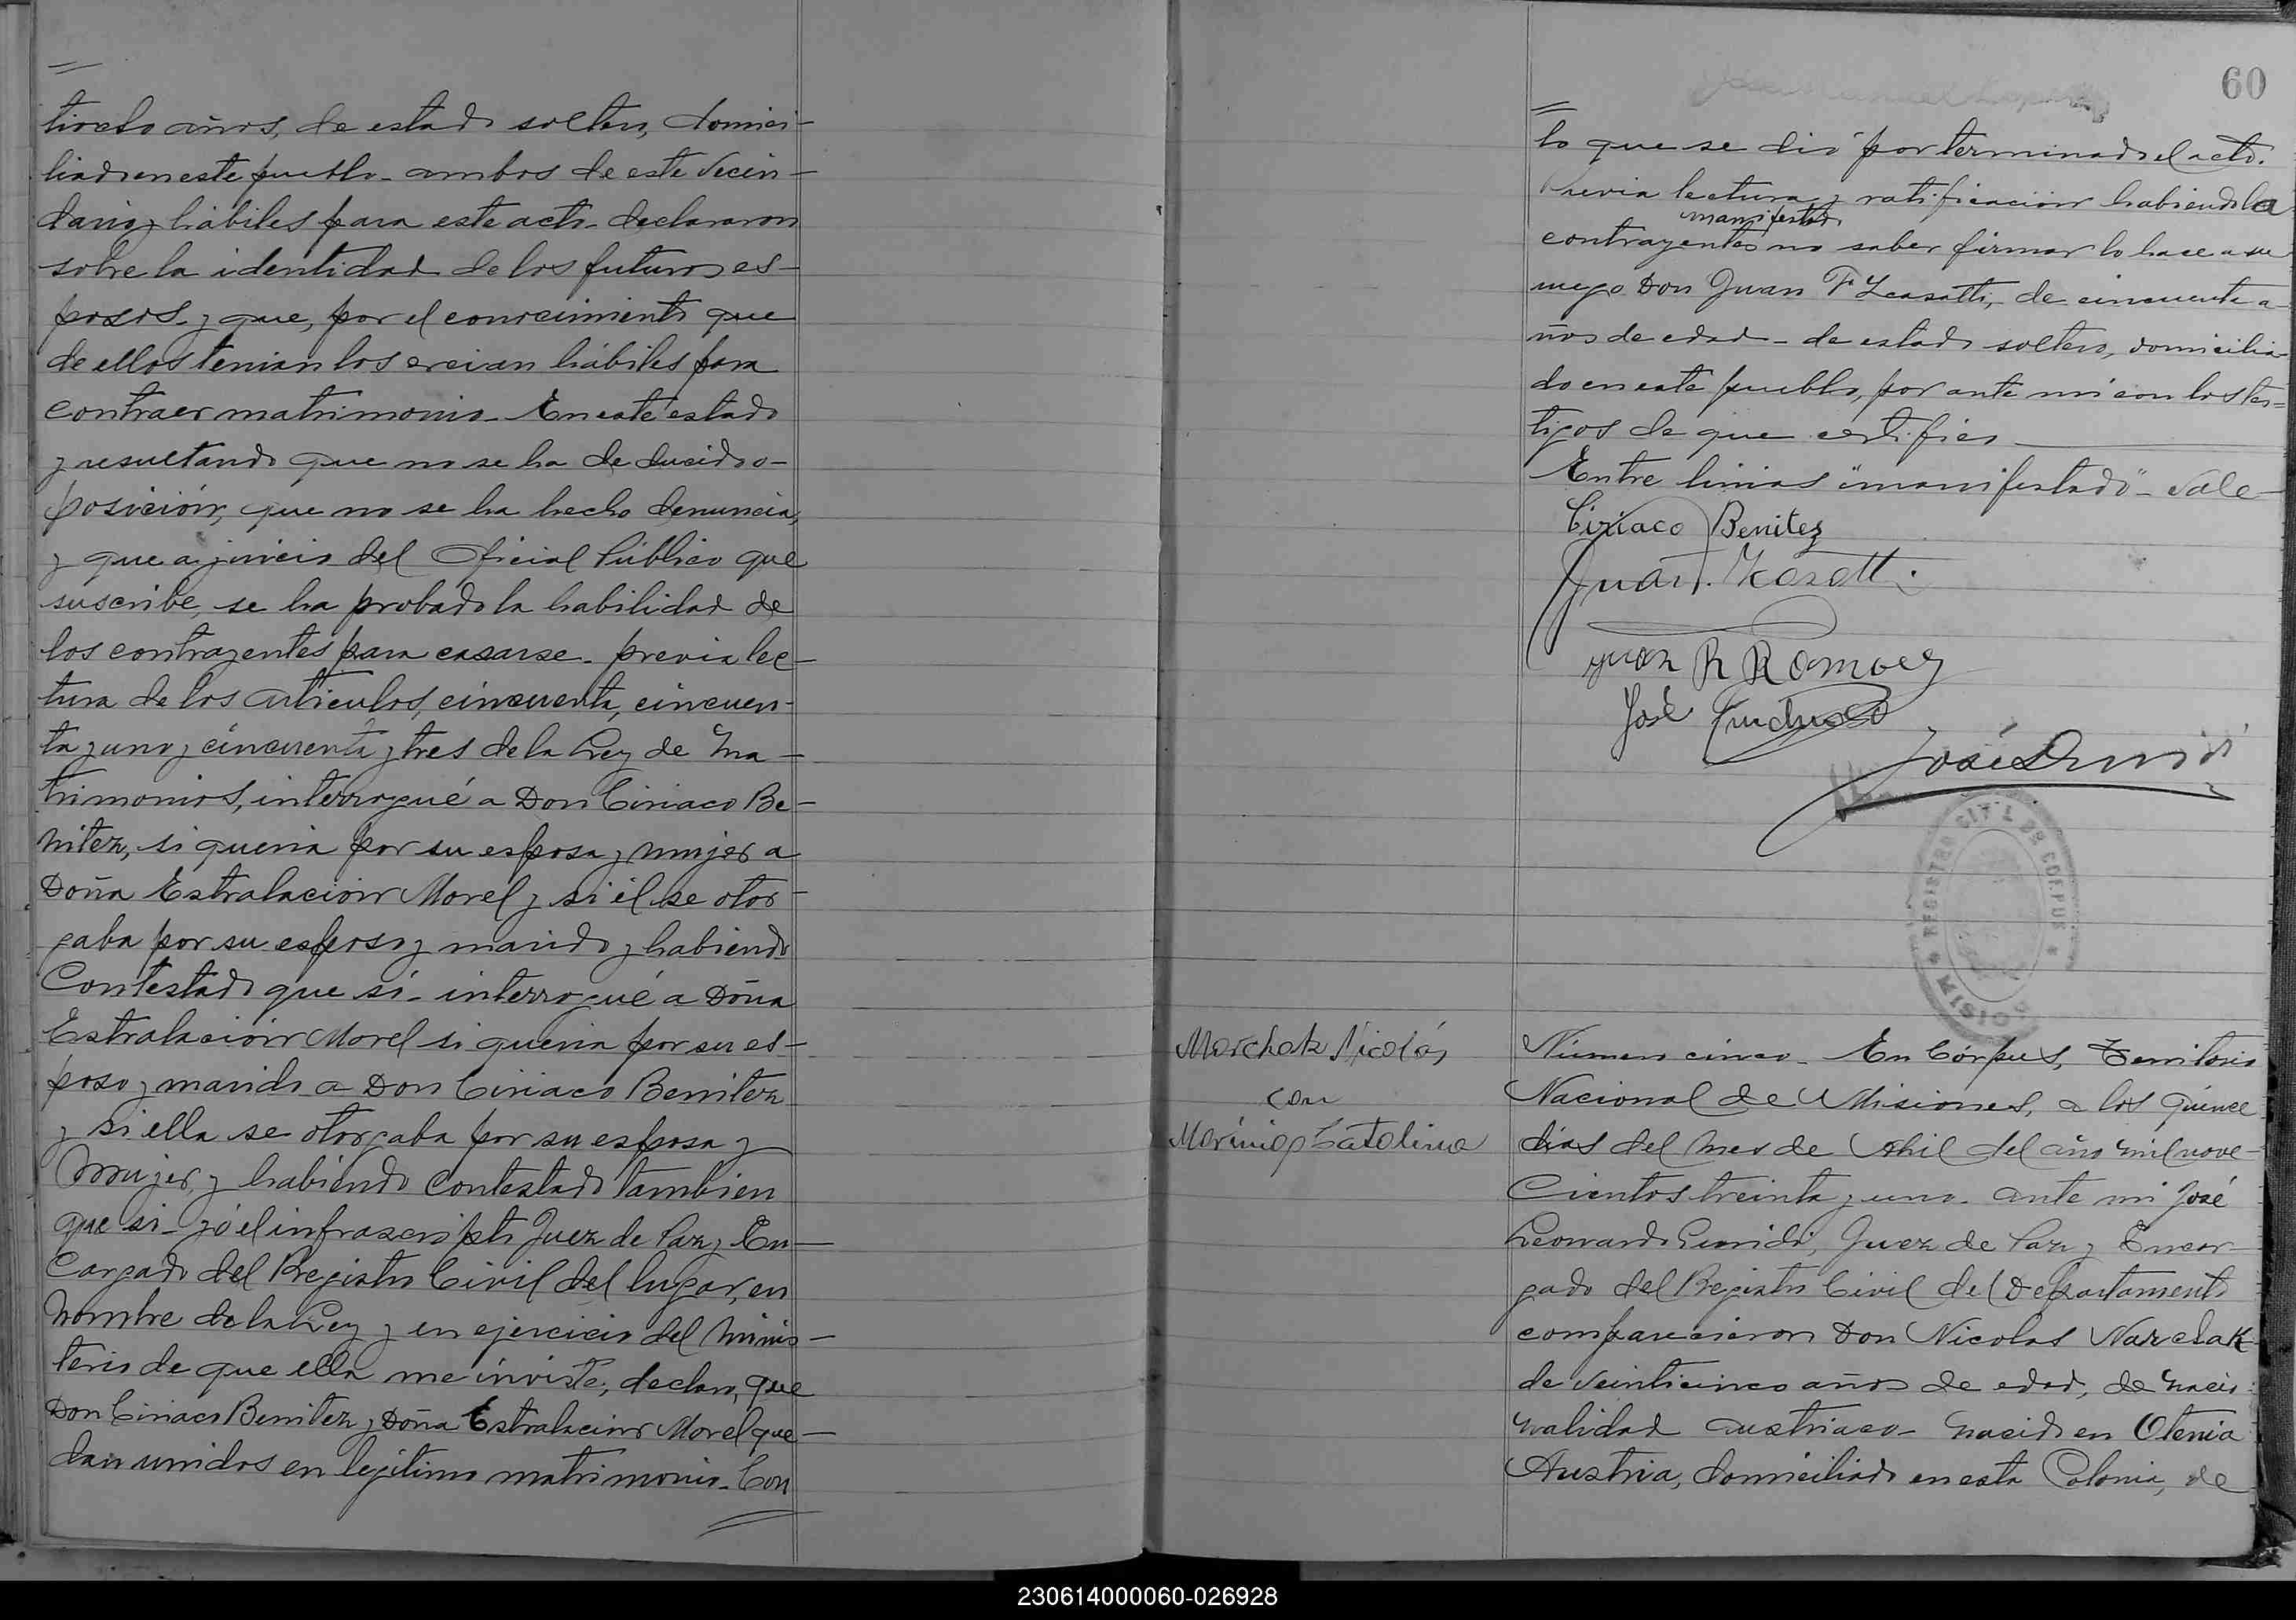 tiocho años, de estado soltero, domici-
liado en este pueblo - ambos de este vecin-
dario y hábiles para este acto - declararon
sobre la identidad de los futuros es-
posos - y que, por el conocimiento que
de ellos tenian los creian hábiles para
contraer matrimonio - En este estado
y resultando que no se ha deducido o-
posición, que no se ha hecho denuncia,
y que a juicio del Oficial Público que
suscribe, se ha probado la habilidad de
los contrayentes para casarse - previa lec-
tura de los articulos, cincuenta, cincuen-
ta y uno y cincuenta y tres de la Ley de Ma-
trimonios, interrogué a Don Ciriaco Be-
nitez, si queria por su esposa y mujer a
Doña Estralacion Morel y si él se otor-
gaba por su esposo y marido y habiendo
Contestado que sí - interrogué a Doña
Estralación Morel si queria por su es-
poso y marido a Don Ciriaco Benitez
y si ella se otorgaba por su esposa y
Mujer, y habiendo Contestado tambien
que si - yó el infrascripto Juez de Paz y En-
Cargado del Registro Civil del lugar, en
Nombre de la Ley y en ejercicio del Minis-
terio de que ella me inviste, declaro, que
Don Ciriaco Benitez y Doña Estralacion Morel que-
dan unidos en legitimo matrimonio - Con
60
lo que se dió por terminado el acto.
Previa lectura y ratificación habiendo la
manifestado
contrayente no saber firmar lo hace a su
ruego Don Juan F de cincuenta a-
ños de edad - de estado soltero, domicilia-
do en este pueblo, por ante mí con los tes-
tigos de que certifico
Entre linias "manifestado" - Vale -
Ciriaco Benitez
Juan
Juan R Ramoez
José
José
REGISTRO CIVIL CORPUS MISIONES
Marchak Nicolás
con
Catalina
Número cinco - En Córpus, Territorio
Nacional de Misiones, a los quince
dias del mes de Abril del año mil nove-
Cientos treinta y uno - ante mi José
Leonardo Juez de Paz y Encar-
gado del Registro Civil del Departamento
comparecieron Don Nicolas Narchak
de veinticinco años de edad, de nacio-
nalidad austriaco - nacido en Otenia
Austria, domiciliado en esta Colonia, de
230614000060-026928